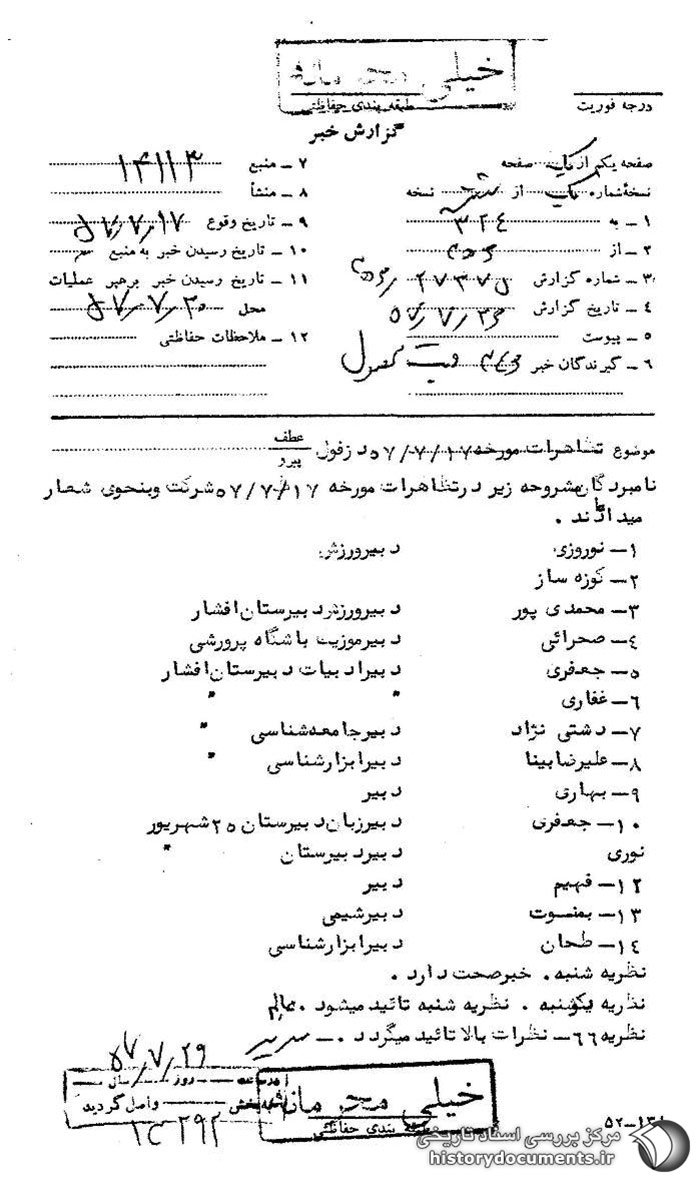 خیلی محرمانه
طبقه بندی حفاظتی
درجه فوریت
گزارش خبر
صفحه یکم از یک صفحه
نسخه شماره یک از شش نسخه
۱ ـ به ۳۲۴
۲ ـ از
۳ ـ شماره گزارش
۴ ـ تاریخ گزارش
۵ ـ پیوست
۶ ـ گیرندگان خبر
۷ ـ منبع ۱۴۱۱۳
۸ ـ منشأ
۹ ـ تاریخ وقوع ۵۷/۷/۱۷
۱۰ ـ تاریخ رسیدن خبر به منبع
۱۱ ـ تاریخ رسیدن خبر برهبر عملیات
محل ۵۷/۷/۲۰
۱۲ ـ ملاحظات حفاظتی
موضوع تظاهرات مورخه ۵۷/۷/۱۷ دزفول عطف
پیرو
نامبردگان مشروحه زیر در تظاهرات مورخه ۵۷/۷/۱۷ شرکت وبنحوی شعار
میدادند .
۱ـ نوروزی دبیرورزش
۲ـ کوزه ساز
۳ـ محمدی پور دبیرورزش دبیرستان افشار
۴ـ صحرائی دبیرموزیت باشگاه پرورشی
۵ـ جعفری دبیرادبیات دبیرستان افشار
۶ـ غفاری " "
۷ـ دشتی نژاد دبیرجامعه شناسی "
۸ـ علیرضابینا دبیرابزارشناسی "
۹ـ بهاری دبیر
۱۰ـ جعفری دبیرزبان دبیرستان ۲۵ شهریور
نوری دبیردبیرستان "
۱۲ـ فهیم دبیر
۱۳ـ بمنسوت دبیرشیمی
۱۴ـ طحان دبیرابزارشناسی
نظریه شنبه . خبرصحت دارد .
نظریه یکشنبه . نظریه شنبه تائید میشود .
نظریه ۶۶ـ نظرات بالا تائید میگردد .
۵۷/۷/۲۹
خیلی محرمانه
طبقه بندی حفاظتی
روز سال
واصل گردید
۵۲ـ۱۳۱
مرکز بررسی اسناد تاریخی
historydocuments.ir